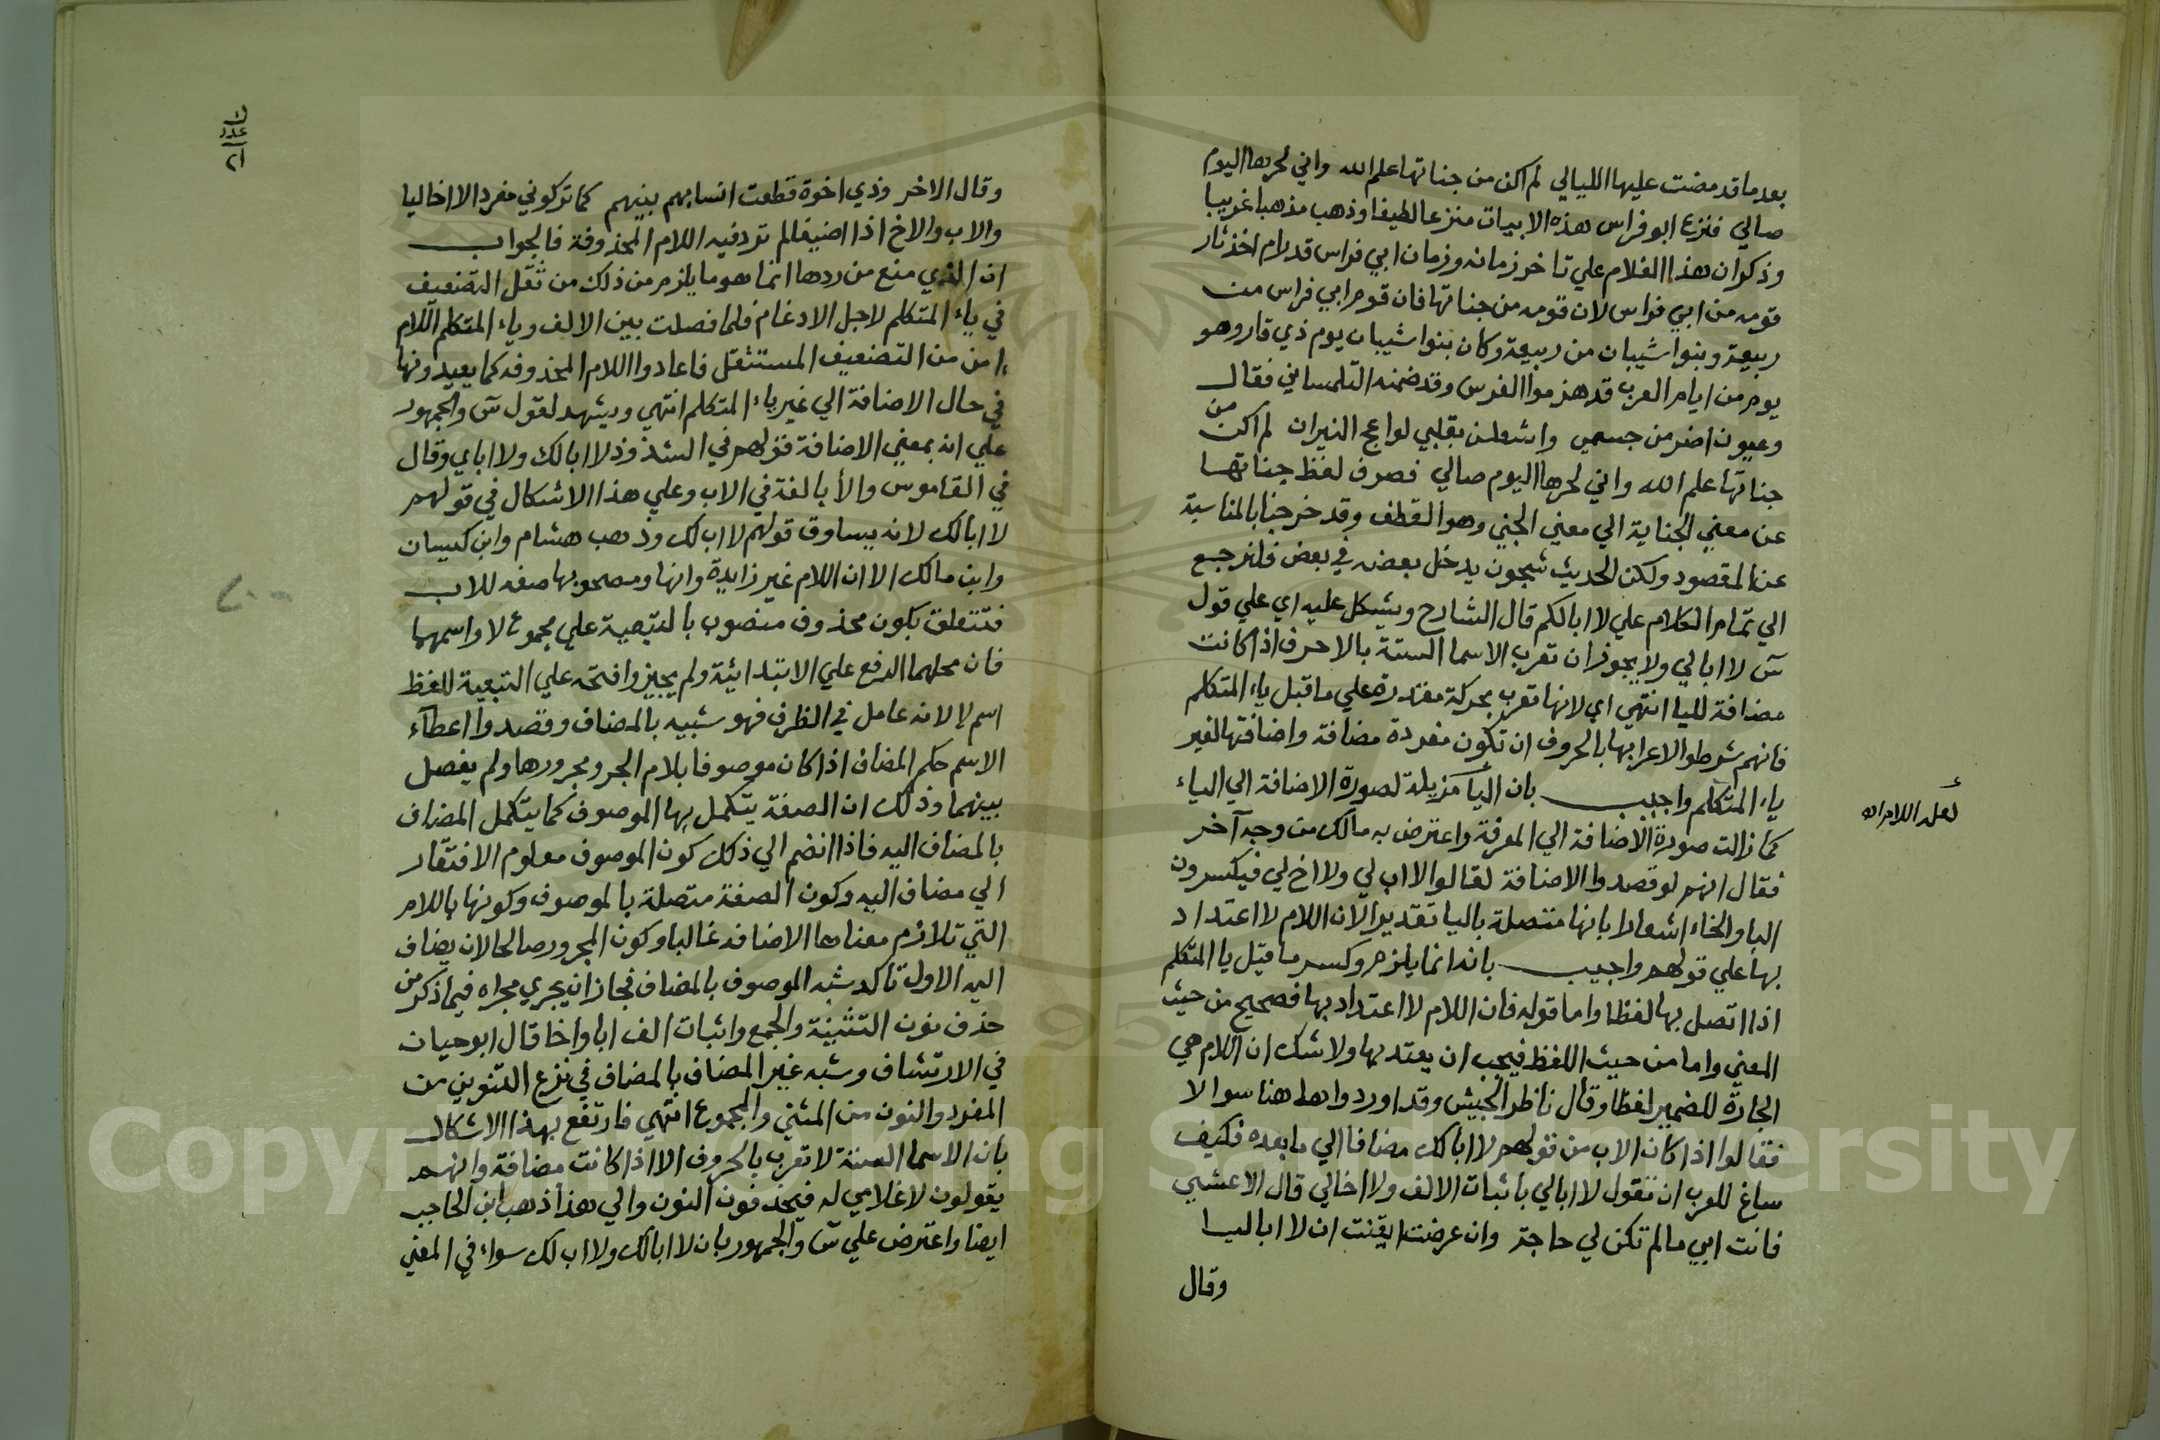 بعد ما قد مضت عليها الليالي لم اكن من جناتها علم الله واني لحرها اليوم
صالي فنزع ابو فراس هذه الابيات منزعا لطيفا وذهب مذهبا غريبا
وذكر ان هذا الغلام علي تاخر زمانه وزمان ابي فراس قد رام اخذ ثار
قومه من ابي فراس لان قومه من جناتها فان قوم ابي فراس من
ربيعة وبنوا شيبان من ربيعة وكان بنوا شيبان يوم ذي قار وهو
يوم من ايام العرب قد هزموا الفرس وقد ضمنه التلمساني فقال
وعيون امرضن جسمي واشعلن بقلبي لواعج النيران لم اكن من
جناتها علم الله واني لحرها اليوم صالي فصرف لفظ جناتها
عن معني الجناية الي معني الجني وهو القطف وقد خرجنا بالمناسبة
عن المقصود ولكن الحديث شجون يدخل بعضه في بعض فلنرجع
الي تمام الكلام علي لا ابالكم قال الشارح ويشكل عليه اي علي قول
س لا ابا لي ولا يجوز ان تعرب الاسما الستة بالاحرف اذا كانت
مضافة لليا انتهي اي لانها تعرب بحركة مقدرة علي ما قبل ياء المتكلم
فانهم شرطوا لاعرابها بالحروف ان تكون مفردة مضافة واضافتها لغير
ياء المتكلم واجيب بان اليأ مزيلة لصورة الاضافة الي الياء
لعله اللام اه
كما زالت صورة الاضافة الي المعرفة واعترض به مالك من وجه آخر
فقال انهم لو قصدوا الاضافة لقالوا لا اب لي ولا اخ لي فيكسرون
البا والخاء اشعارا بانها متصلة باليا تقديرا لان اللام لا اعتداد
بها علي قولهم واجيب بانه انما يلزم وكسر ما قبل يا المتكلم
اذا اتصل بها لفظا واما قوله فان اللام لا اعتداد بها فصحيح من حيث
المعني واما من حيث اللفظ فيجب ان يعتد بها ولا شك ان اللام هي
الجارة للضمير لفظا وقال ناظر الجيش وقد اوردوا هاهنا سوالا
فقالوا اذا كان الاب من قولهم لا ابا لك مضافا الي ما بعده فكيف
ساغ للعرب ان تقول لا ابا لي باثبات الالف ولا اخا لي قال الاعشي
فانت ابي ما لم تكن لي حاجة وان عرضت ايقنت ان لا ابا ليا
وقال
وقال الاخر وذي اخوة قطعت انسابهم بينهم كما تركوني مفردا لا اخا ليا
والاب والاخ اذا اضيفا لم ترد فيه اللام المحذوفة فالجواب
ان الذي منع من ردها انما هو ما يلزم من ذلك من ثقل التضعيف
في ياء المتكلم لاجل الادغام فلما فصلت بين الالف وياء المتكلم اللام
امن من التضعيف المستثقل فاعادوا اللام المحذوفه كما يعيدونها
في حال الاضافة الي غير ياء المتكلم انتهي ويشهد لقول س والجمهور
علي انه بمعني الاضافة قولهم في الشذوذ لا اباك ولا اباي وقال
في القاموس والأبا لغة في الاب وعلي هذا الاشكال في قولهم
لا ابالك لانه يساوق قولهم لا اب لك وذهب هشام وابن كيسان
وابن مالك الا ان اللام غير زايدة وانها ومصحوبها صفه للاب
فتتعلق بكون محذوف منصوب بالتبعية علي مجموع لا واسمها
فان محلهما الرفع علي الابتدائية ولم يجيزوا فتحه علي التبعية للفظ
اسم لا لانه عامل في الظرف فهو شبيه بالمضاف وقصدوا اعطآء
الاسم حكم المضاف اذا كان موصوفا بلام الجر ومجرورها ولم يفصل
بينهما وذلك ان الصفة يتكمل بها الموصوف كما يتكمل المضاف
بالمضاف اليه فاذا انضم الي ذلك كون الموصوف معلوم الافتقار
الي مضاف اليه وكون الصفة متصلة بالموصوف وكونها باللام
التي تلازم معناها الاضافه غالبا وكون المجرور صالحا لان يضاف
اليه الاول تاكد شبه الموصوف بالمضاف فجاز ان يجري مجراه فيما ذكر من
حذف نون التثنية والجمع واثبات الف ابا واخا قال ابو حيان
في الارتشاف وشبه غير المضاف بالمضاف في نزع التنوين من
المفرد والنون من المثني والمجموع انتهي فارتفع بهذا الاشكال
بان الاسما الستة لا تعرب بالحروف الا اذا كانت مضافة وانهم
يقولون لا غلامي له فيحذفون النون والي هذا ذهب ابن الحاجب
ايضا واعترض علي س والجمهور بان لا ابالك ولا اب لك سواء في المعني
Copyright © King Saud University
1957